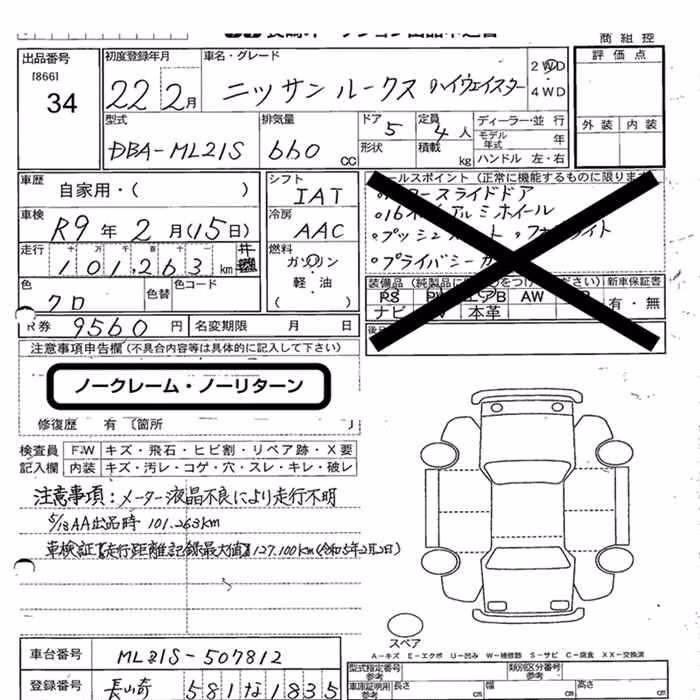 商組控
出品番号
[866]
34
初度登録年月
22 2月
車名・グレード
ニッサン ルークス ハイウェイスター
2WD
4WD
評価点
外装 内装
型式
DBA-ML21S
排気量
660 CC
ドア 5
形状
定員 4人
積載 kg
ディーラー・並行
モデル年式 年
ハンドル 左・右
車歴
自家用・( )
車検
R9年 2月(15日)
走行
十万千百十
101,263 km
色
クロ
色替
色コード
シフト
IAT
冷房
AAC
燃料
ガソリン
軽・油
( )
R券 9560円
名変期限 月 日
セールスポイント(正常に機能するものに限ります)
スライドドア
アルミホイール
プッシュ
プライバシー
新車保証書
有・無
AW
ナビ
本革
注意事項申告欄(不具合内容等は具体的に記入して下さい)
ノークレーム・ノーリターン
修復歴 有 〔箇所 〕
検査員記入欄
F・W キズ・飛石・ヒビ割・リペア跡・X要
内装 キズ・汚レ・コゲ・穴・スレ・キレ・破レ
注意事項:メーター液晶不良により走行不明
5/13AA出品時 101.263km
車検証【走行距離記録最大値】127,100km(令和5年2月2日)
スペア
A-キズ E-エクボ U-凹み W-補修跡 S-サビ C-腐食 XX-交換済
車台番号
ML21S-507812
登録番号
長崎 581 な 1835
型式指定番号
参考
類別区分番号
参考
車庫証明用
参考
長さ cm
幅 cm
高さ cm